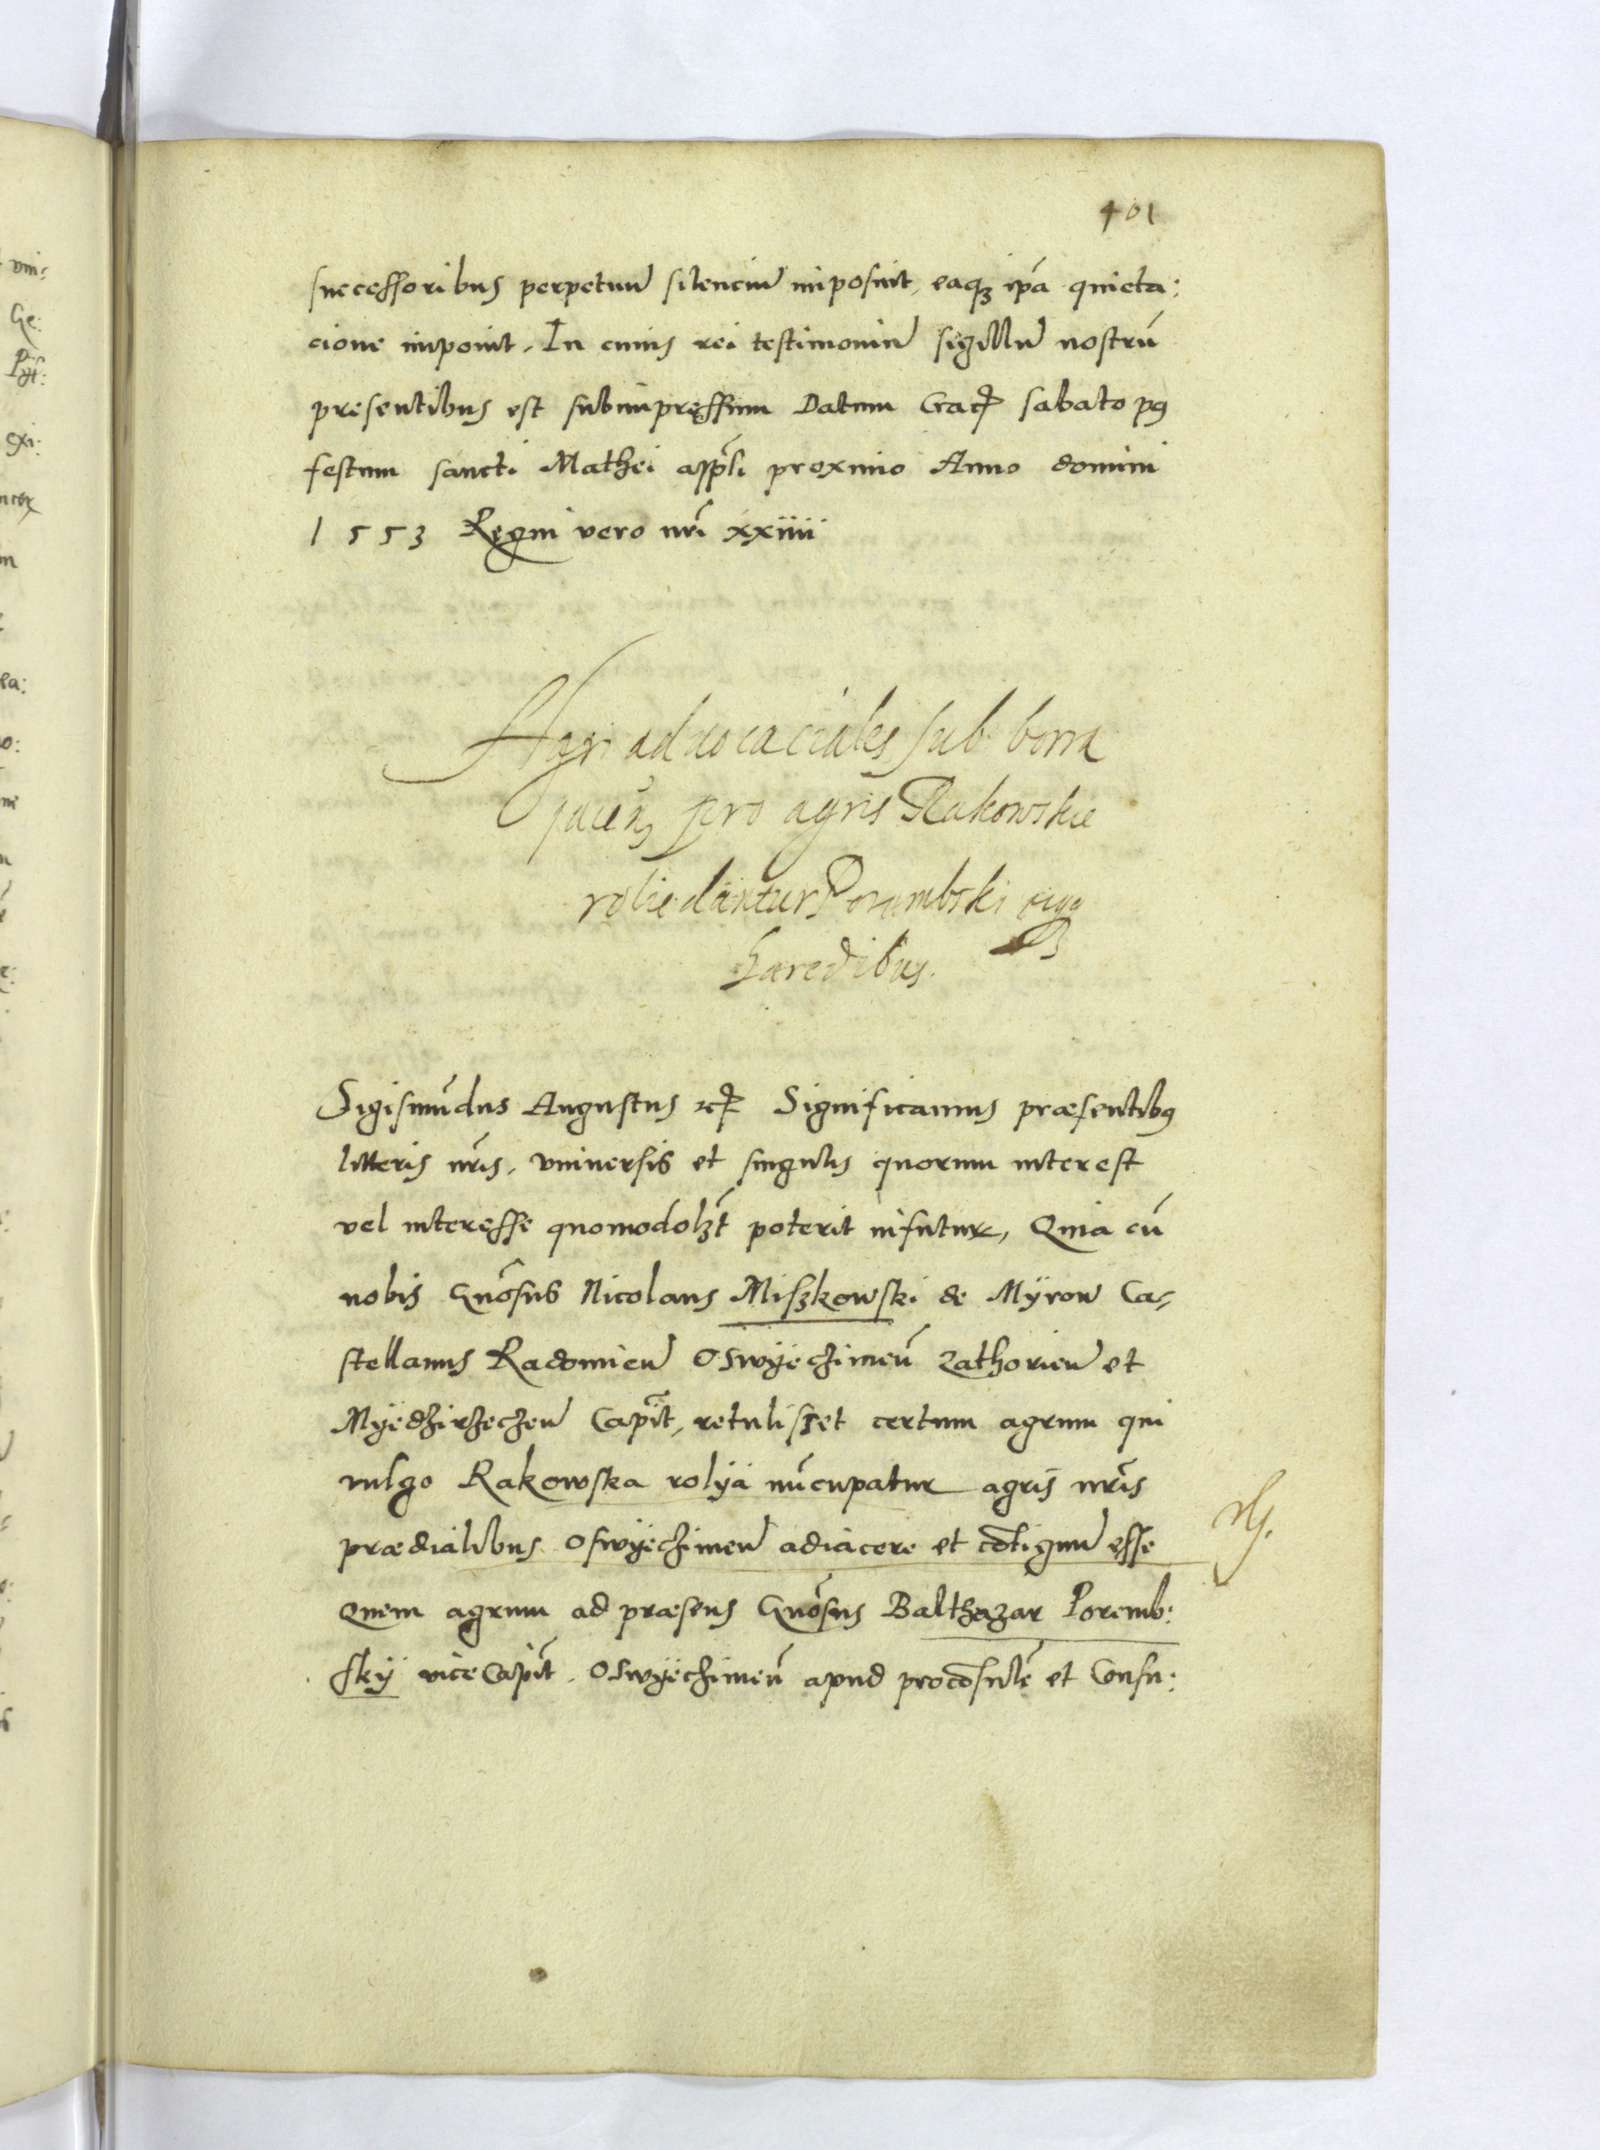 401
successoribus perpetuū silenciū imposuit, eaqꝫ ipā quieta:
cione imponit. In cuius rei testimoniū sigillū nostrū
presentibus est subimpressum Datum Crac̄ sabato pꝰ
festum sancti Mathei app̄li proximo Anno domini
1553 Regni vero nr̄i xxiiii
Agri aduocaciales sub borra
jacen̄ pro agris Rakowskie
rolie dantur Porambski
haredibus.
Sigismūdus Augustus ⁊c̄ Significamus præsentibꝰ
litteris nr̄is, vniuersis et singulis quorum interest
vel interesse quomodolꝫt poterit infuture, Quia cū
nobis Gnōsus Nicolaus Miszkowski de Mÿrow Ca-
stellanus Radomien̄ Oswÿeczimen̄ Zathorien̄ et
Mÿedzirzeczen̄ Capit̄, retulisset certum agrum qui
vulgo Rakowska rolÿa nūcupatur agris nr̄is
prædialibus Oswÿeczimen̄ adiacere et cōtiguū esse
Quem agrum ad præsens Gnōsus Balthazar Poremb:
skÿ viceCapit̄. Oswÿeczimen̄ apud procōsulē et Consu: